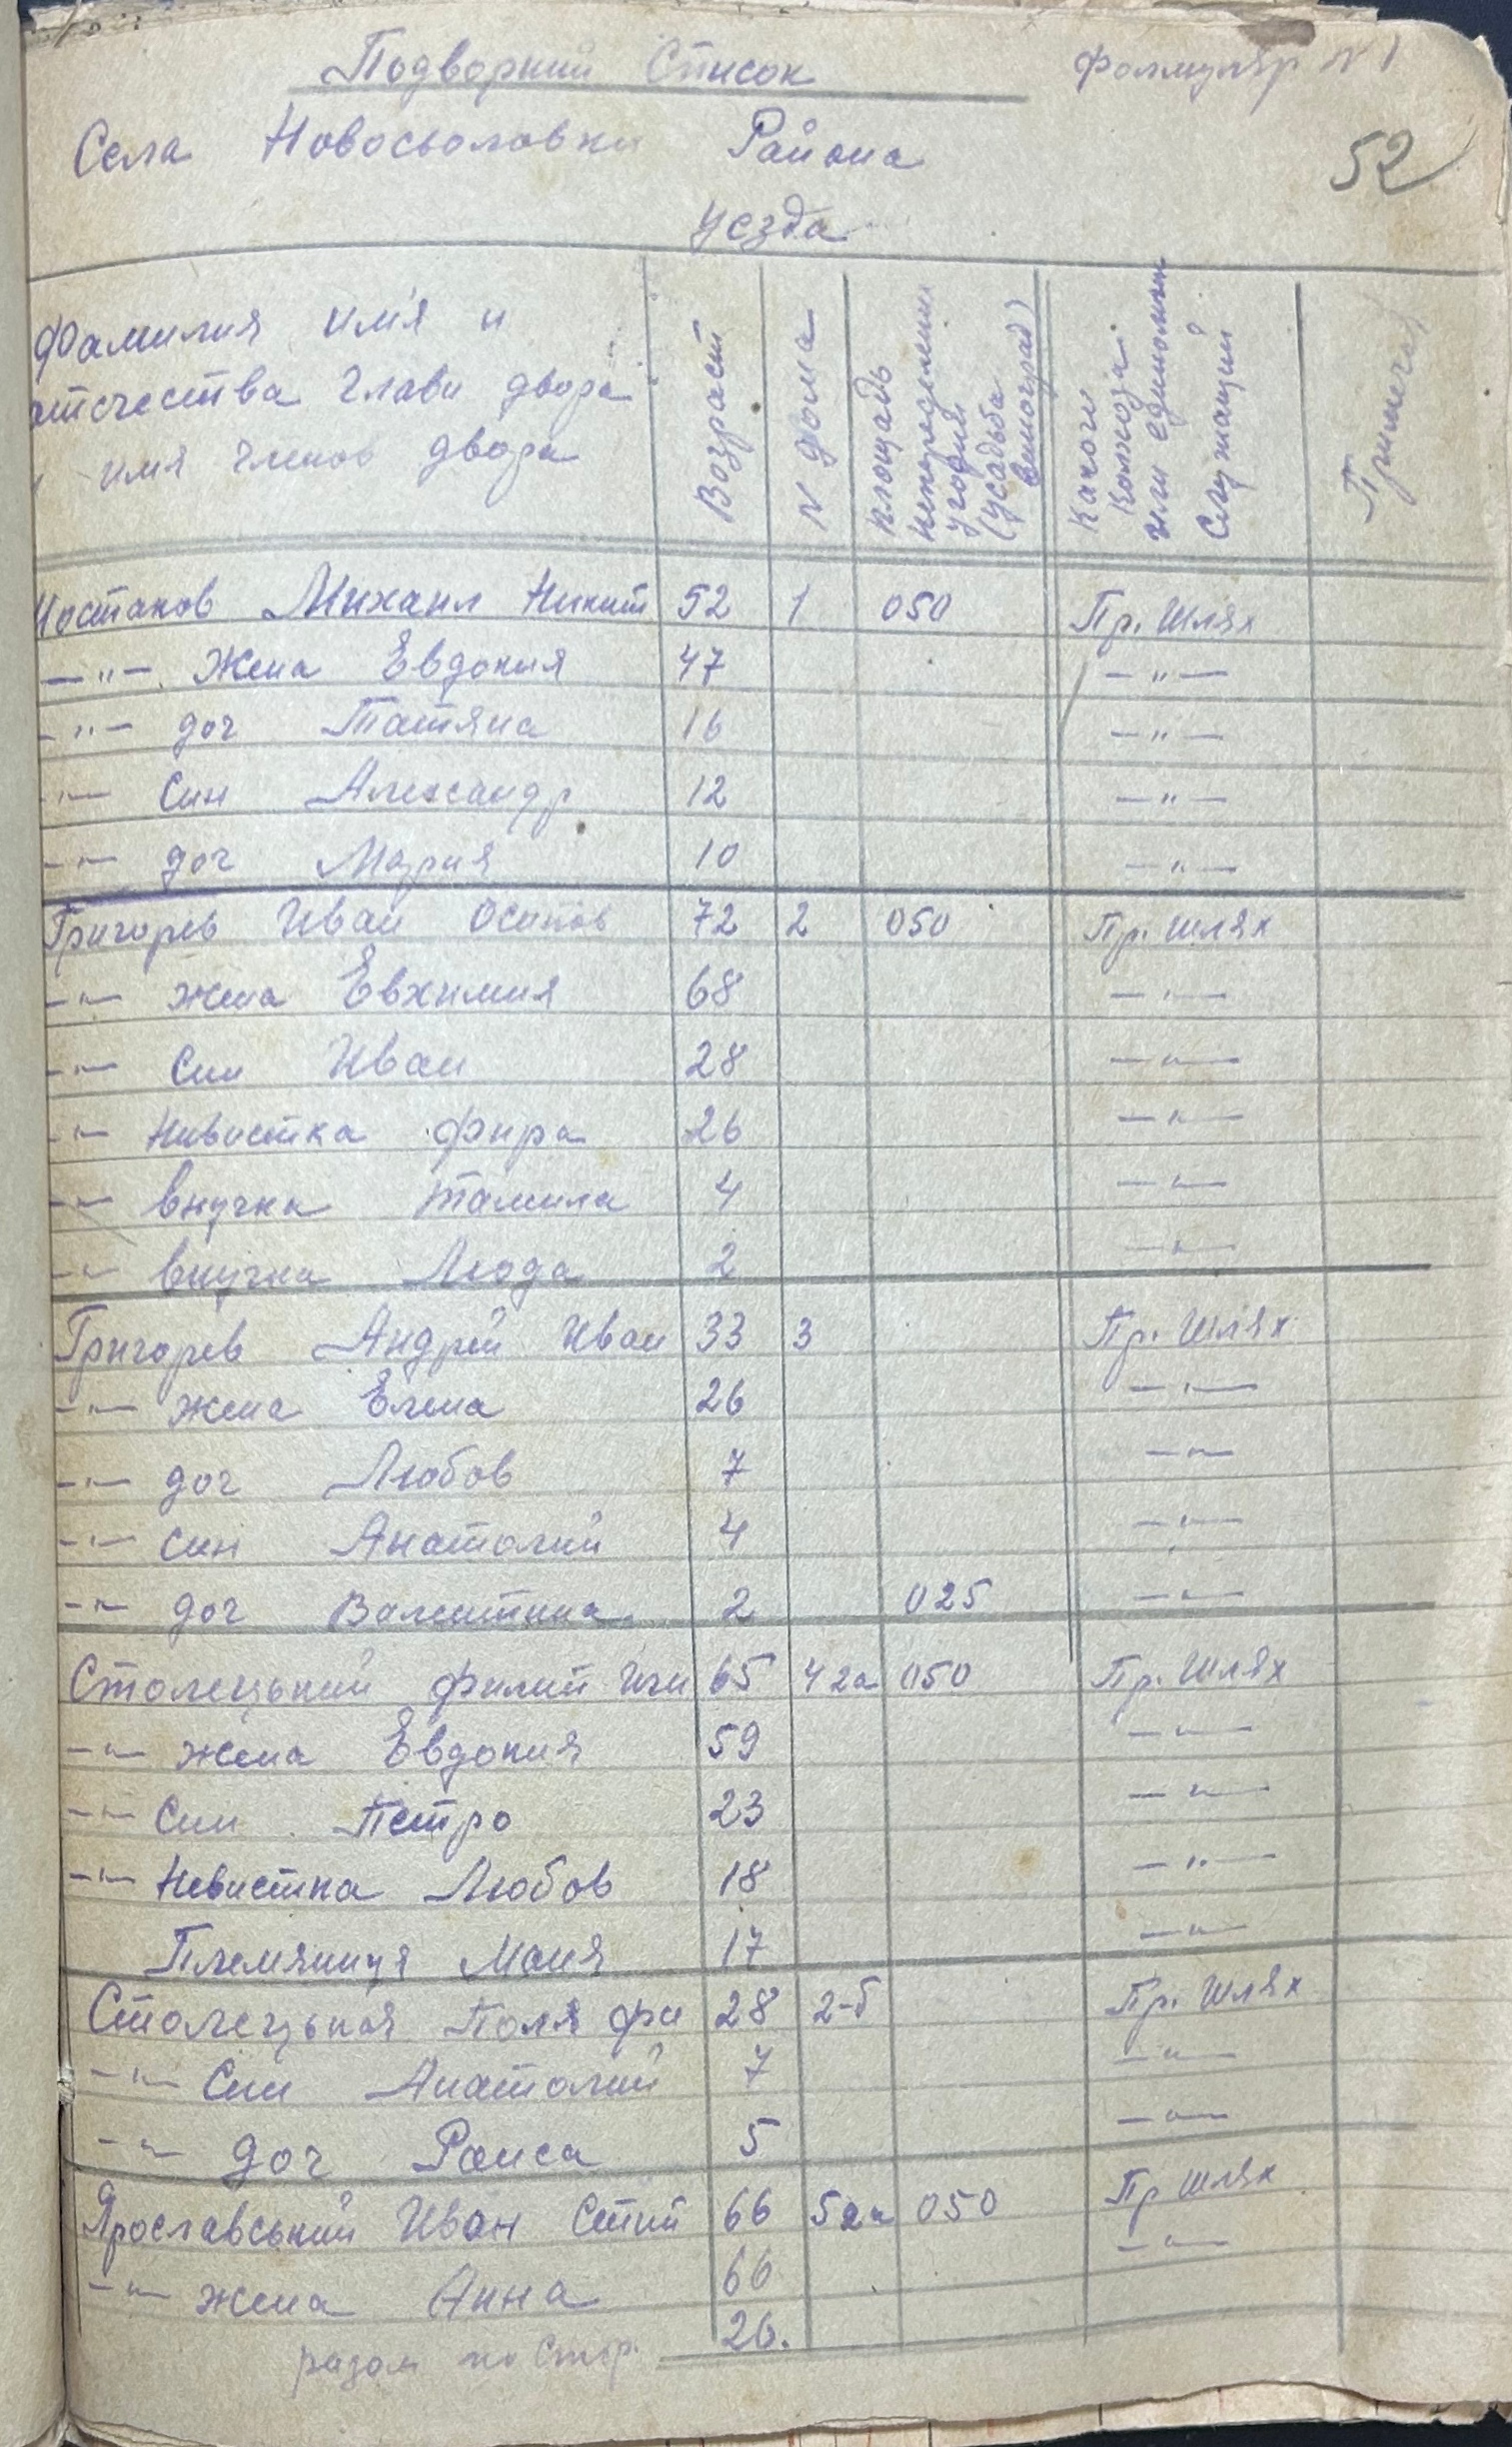 Подворний Список Формуляр № 1
Села Новосьоловки Района 52
уезда
Фамилия им'я и
отечества Глави двора
имя членов двора
Возраст
N дома
площадь
непределини
угодий
(усадьба
виноград)
Какого
Колхоза
или единолич
Служащий
Примечан
Михаил Никит 52 1 050 Пр. Шлях
—"—. Жена Евдокия 47 —"—
—"— доч Татяна 16 —"—
—"— Син Александр 12 —"—
—"— доч Мария 10 —"—
Григорев Иван Осипов 72 2 050 Пр. Шлях
—"— жена Евхимия 68 —"—
—"— Син Иван 28 —"—
—"— Нивистка Фира 26 —"—
—"— внучка Тамила 4 —"—
—"— внучка Люда 2 —"—
Григорев Андрей Иван 33 3 Пр. Шлях
—"— жена Елена 26 —"—
—"— доч Любов 7 —"—
—"— Син Анатолий 4 —"—
—"— доч Валентина 2 025 —"—
Столецький Филип 65 4 2а 050 Пр. Шлях
—"— жена Евдокия 59 —"—
—"— Син Петро 23 —"—
—"— Невистка Любов 18 —"—
Племяниця Маня 17 —"—
Столецькая Поля Фи 28 2-б Пр. Шлях
—"— Син Анатолий 7 —"—
—"— Доч Раиса 5 —"—
Ярославський Иван Стип 66 5 2а 050 Пр Шлях
—"— жена Анна 66 —"—
разом по Стор. 26.